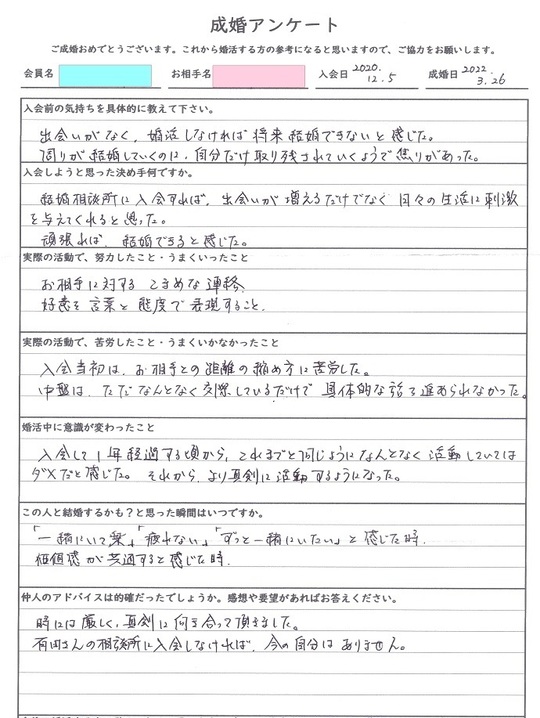 成婚アンケート
ご成婚おめでとうございます。これから婚活する方の参考になると思いますので、ご協力をお願いします。
会員名 お相手名 入会日 2020.12.5 成婚日 2022.3.26
入会前の気持ちを具体的に教えて下さい。
出会いがなく、婚活しなければ将来結婚できないと感じた。
周りが結婚していくのに、自分だけ取り残されていくようで焦りがあった。
入会しようと思った決め手何ですか。
結婚相談所に入会すれば、出会いが増えるだけでなく日々の生活に刺激
を与えてくれると思った。
頑張れば、結婚できると感じた。
実際の活動で、努力したこと・うまくいったこと
お相手に対するこまめな連絡
好意を言葉と態度で表現すること。
実際の活動で、苦労したこと・うまくいかなかったこと
入会当初は、お相手との距離の縮め方に苦労した。
中盤は、ただなんとなく交際しているだけで具体的な話を進められなかった。
婚活中に意識が変わったこと
入会して1年経過する頃から、これまでと同じようになんとなく活動していては
ダメだと感じた。それから、より真剣に活動するようになった。
この人と結婚するかも?と思った瞬間はいつですか。
「一緒にいて楽」「疲れない」「ずっと一緒にいたい」と感じた時。
価値感が共通すると感じた時。
仲人のアドバイスは的確だったでしょうか。感想や要望があればお答えください。
時には厳しく、真剣に向き合って頂きました。
有田さんの相談所に入会しなければ、今の自分はありません。